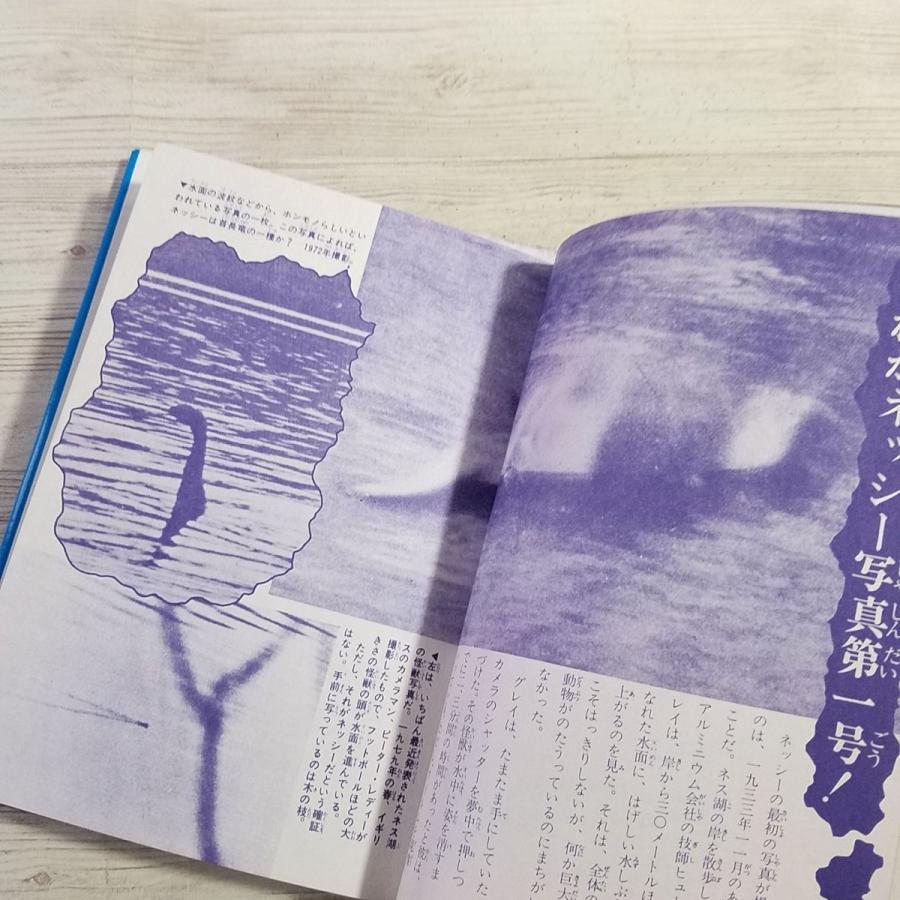 ▼水面の波紋などから、ホンモノらしいとい
われている写真の一枚。この写真によれば、
ネッシーは首長竜の一種か?　1972年撮影。
ネッシー写真第一号!
ネッシーの最初の写真が
のは、一九三三年一一月のあ
ことだ。ネス湖の岸を散歩し
アルミニウム会社の技師ヒュ
レイは、岸から三〇メートルほ
なれた水面に、はげしい水しぶ
上がるのを見た。それは、全体の
こそはっきりしないが、何か巨大
動物がのたうっているのにまちが
なかった。
グレイは、たまたま手にしていた
カメラのシャッターを夢中で押しつ
づけた。その怪獣が水中に姿を消すま
▼左は、いちばん最近発表されたネス湖
の怪獣写真だ。一九七九年の春、イギリ
スのカメラマン、ピーター・レディーが
撮影したもので、フットボールほどの大
きさの怪獣の頭が水面を進んでいる。
ただし、それがネッシーだという確証
はない。手前に写っているのは木の枝。